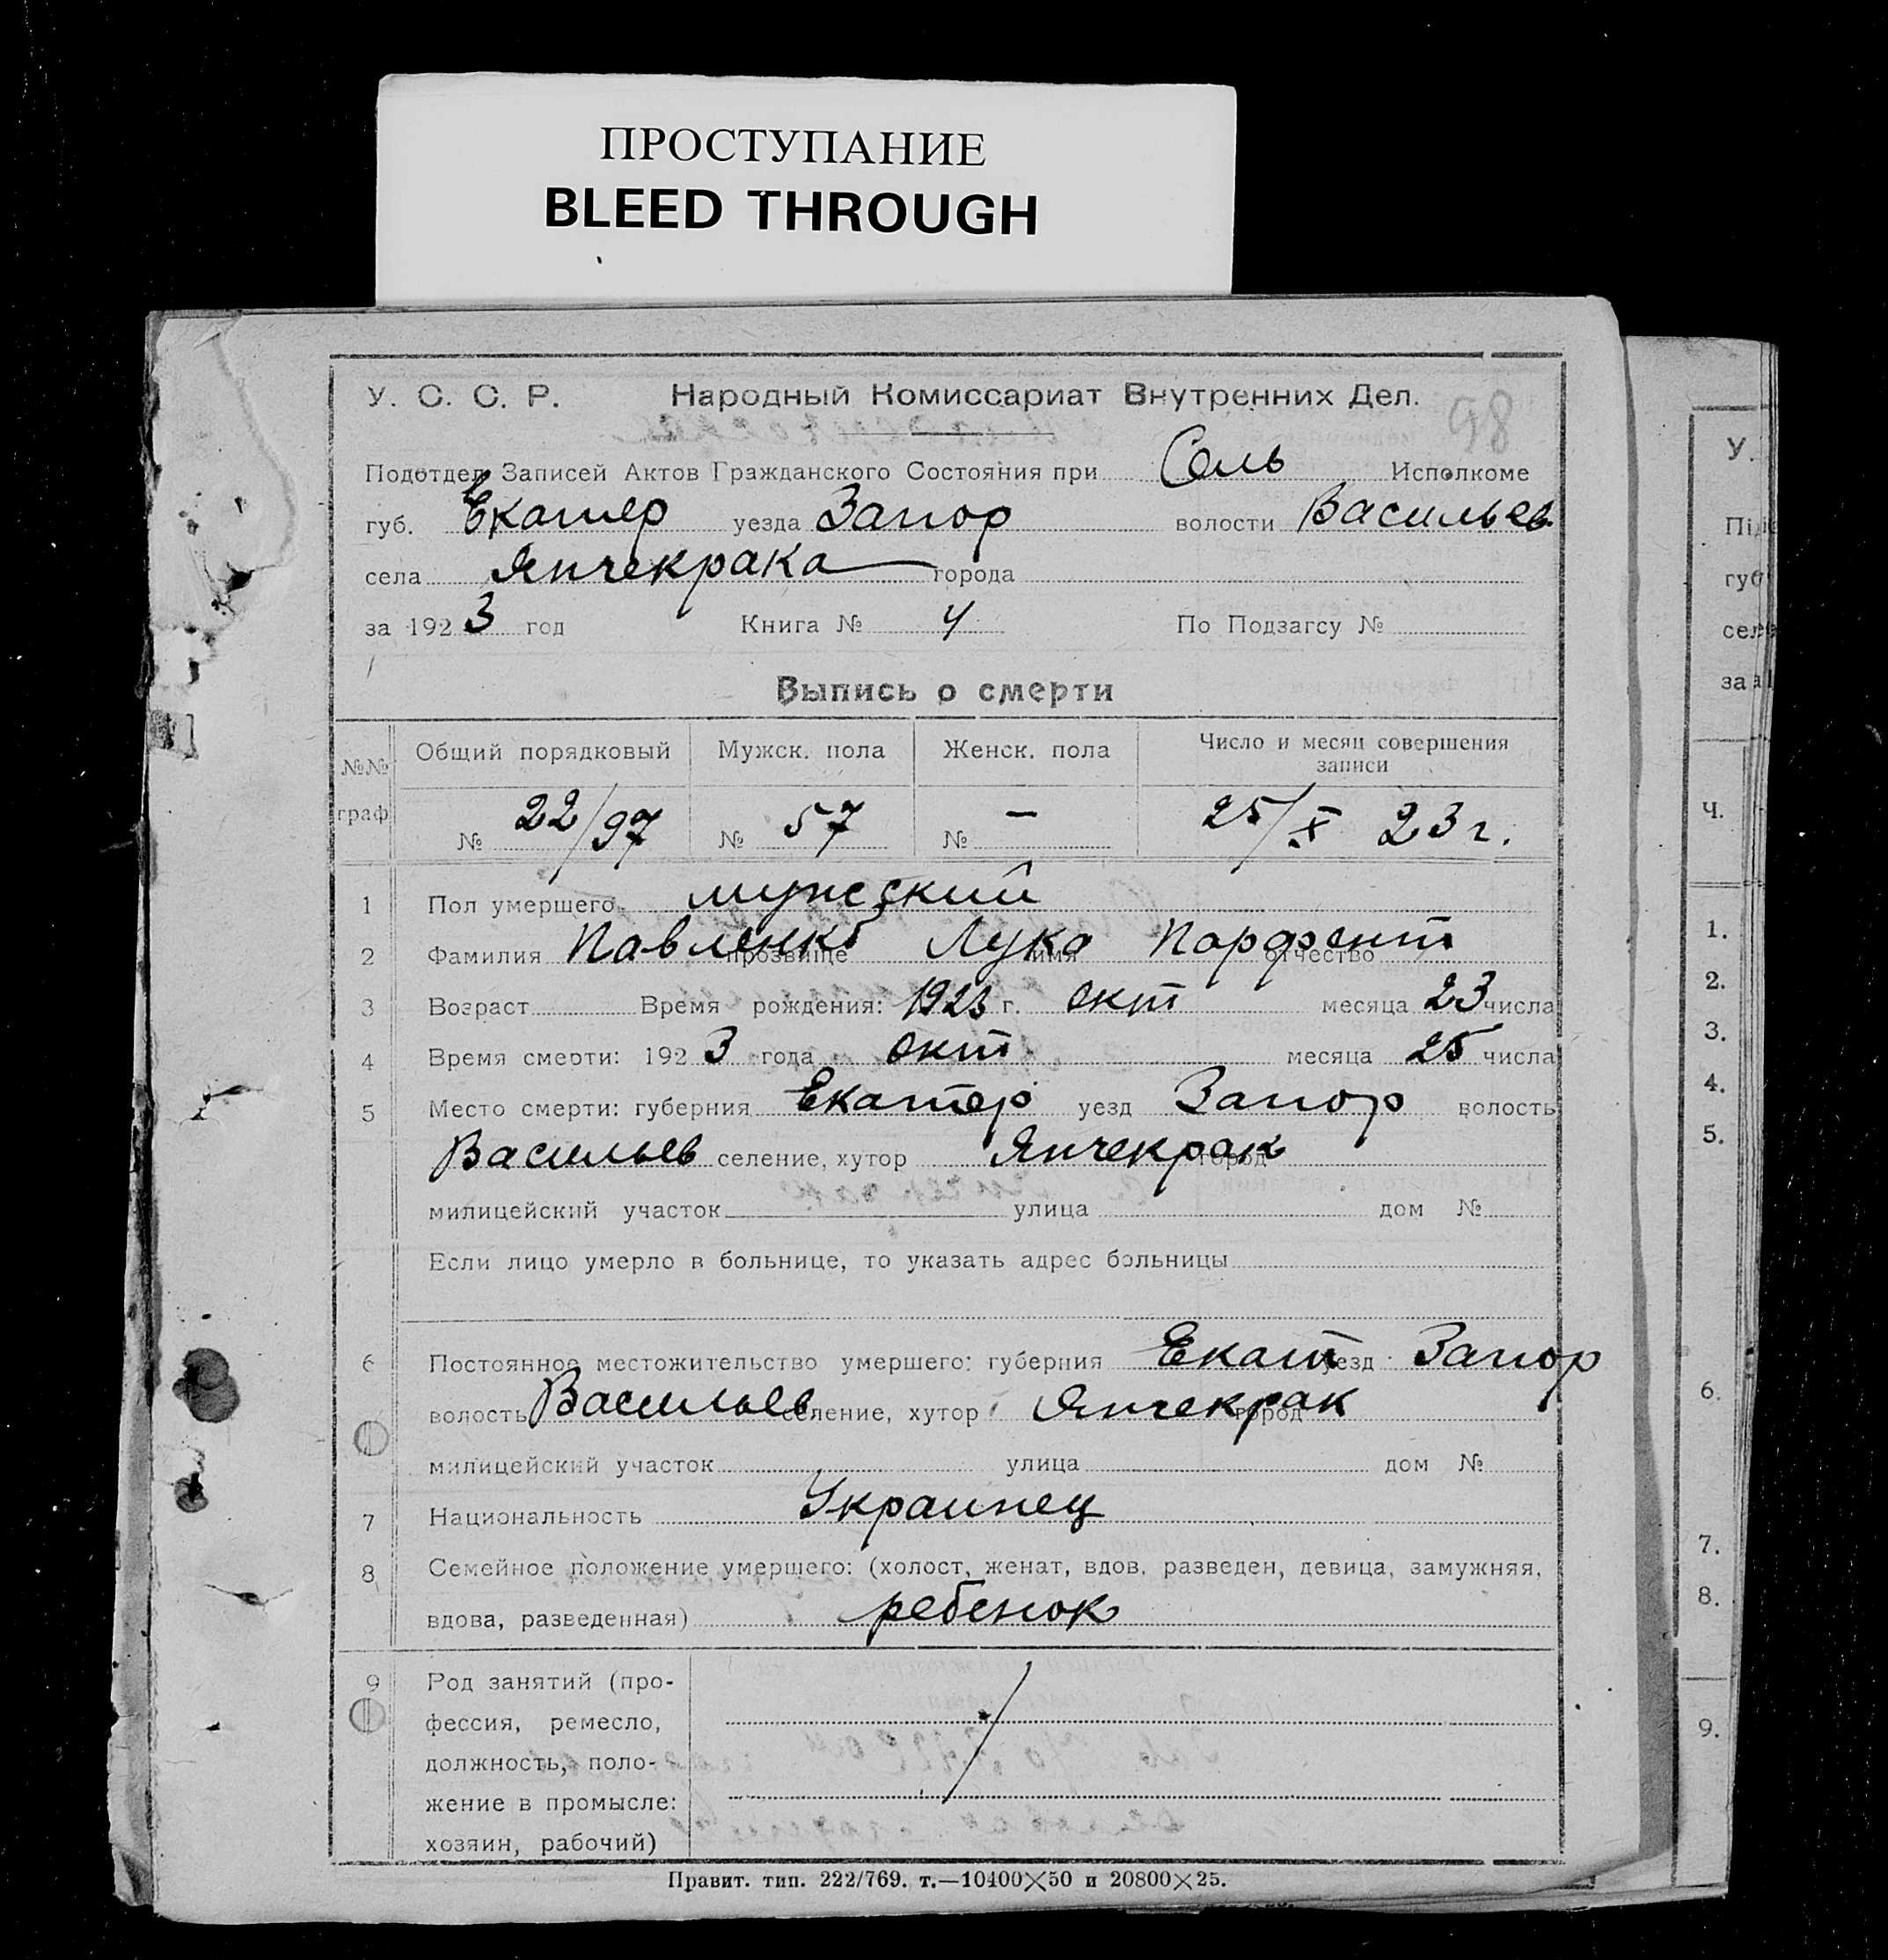 ПРОСТУПАНИЕ
BLEED THROUGH
У. С. С. Р. Народный Комиссариат Внутренних Дел. 98
Подотдел Записей Актов Гражданского Состояния при Сель Исполкоме
губ. Екатер уезда Запор волости Васильев
села Янчекрака города
за 1923 год Книга № 4 По Подзагсу №
Выпись о смерти
№№ граф Общий порядковый Мужск. пола Женск. пола Число и месяц совершения записи
№ 22/97 № 57 № — 25/X 23 г.
1 Пол умершего мужеский
2 Фамилия Павленко прозвище Лука имя Парфент отчество
3 Возраст Время рождения: 1923 г. окт месяца 23 числа
4 Время смерти: 1923 года окт месяца 25 числа
5 Место смерти: губерния Екатер уезд Запор волость
Васильев селение, хутор Янчекрак город
милицейский участок улица дом №
Если лицо умерло в больнице, то указать адрес больницы
6 Постоянное местожительство умершего: губерния Екат уезд Запор
волость Васильев селение, хутор Янчекрак город
милицейский участок улица дом №
7 Национальность Украинец
8 Семейное положение умершего: (холост, женат, вдов, разведен, девица, замужняя,
вдова, разведенная) ребенок
9 Род занятий (про-
фессия, ремесло,
должность, поло-
жение в промысле:
хозяин, рабочий)
Правит. тип. 222/769. т.—10400×50 и 20800×25.
У.
губ
за
Ч.
1.
2.
3.
4.
5.
6.
7.
8.
9.